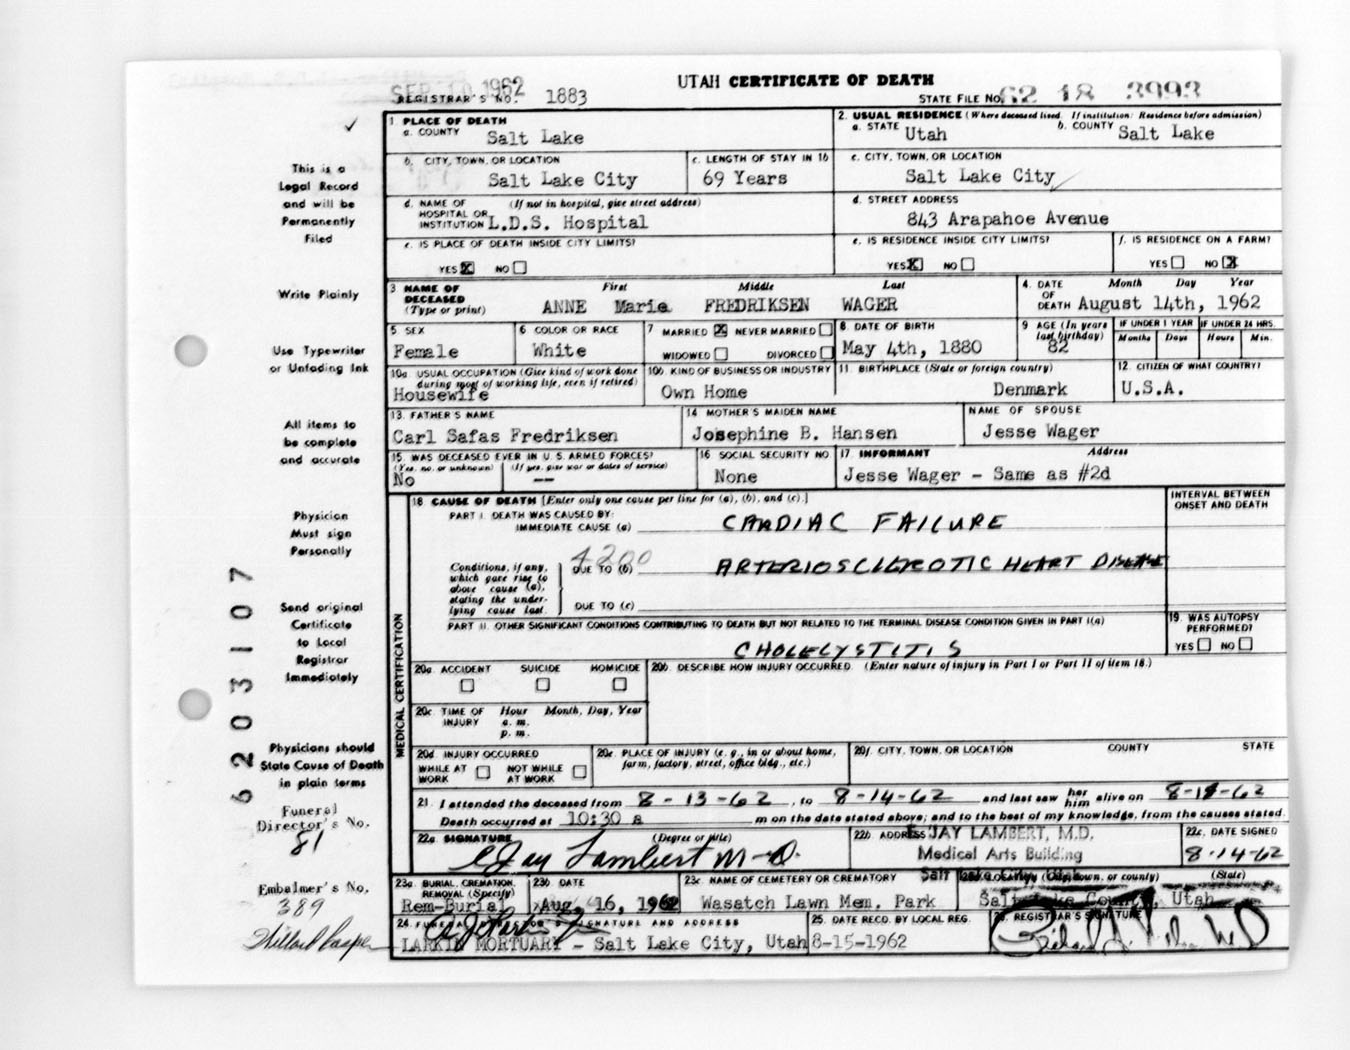 SEP 10 1962
UTAH CERTIFICATE OF DEATH
REGISTRAR'S NO. 1883
STATE FILE NO. 62 18 3993
This is a
Legal Record
and will be
Permanently
Filed
Write Plainly
Use Typewriter
or Unfading Ink
All items to
be complete
and accurate
Physician
Must sign
Personally
Send original
Certificate
to Local
Registrar
Immediately
Physicians should
State Cause of Death
in plain terms
Funeral
Director's No.
81
Embalmer's No.
389
6203107
1 PLACE OF DEATH
a. COUNTY Salt Lake
2. USUAL RESIDENCE (Where deceased lived. If institution: Residence before admission)
a. STATE Utah b. COUNTY Salt Lake
b. CITY, TOWN, OR LOCATION
Salt Lake City
c. LENGTH OF STAY IN 1b
69 Years
c. CITY, TOWN, OR LOCATION
Salt Lake City
d. NAME OF (If not in hospital, give street address)
HOSPITAL OR
INSTITUTION L.D.S. Hospital
d. STREET ADDRESS
843 Arapahoe Avenue
e. IS PLACE OF DEATH INSIDE CITY LIMITS?
YES X NO
e. IS RESIDENCE INSIDE CITY LIMITS?
YES X NO
f. IS RESIDENCE ON A FARM?
YES NO X
3 NAME OF DECEASED (Type or print)
First Middle Last
ANNE Marie FREDRIKSEN WAGER
4. DATE OF DEATH Month Day Year
August 14th, 1962
5 SEX
Female
6 COLOR OR RACE
White
7 MARRIED X NEVER MARRIED
WIDOWED DIVORCED
8 DATE OF BIRTH
May 4th, 1880
9 AGE (In years last birthday)
82
IF UNDER 1 YEAR
Months Days
IF UNDER 24 HRS.
Hours Min.
10a USUAL OCCUPATION (Give kind of work done
during most of working life, even if retired)
Housewife
10b KIND OF BUSINESS OR INDUSTRY
Own Home
11 BIRTHPLACE (State or foreign country)
Denmark
12 CITIZEN OF WHAT COUNTRY?
U.S.A.
13. FATHER'S NAME
Carl Safas Fredriksen
14 MOTHER'S MAIDEN NAME
Josephine B. Hansen
NAME OF SPOUSE
Jesse Wager
15. WAS DECEASED EVER IN U.S. ARMED FORCES?
(Yes, no, or unknown) (If yes, give war or dates of service)
No --
16 SOCIAL SECURITY NO
None
17 INFORMANT Address
Jesse Wager - Same as #2d
18 CAUSE OF DEATH [Enter only one cause per line for (a), (b), and (c).]
INTERVAL BETWEEN
ONSET AND DEATH
PART I. DEATH WAS CAUSED BY:
IMMEDIATE CAUSE (a) CARDIAC FAILURE
4200
Conditions, if any,
which gave rise to
above cause (a),
stating the under-
lying cause last.
DUE TO (b) ARTERIOSCLEROTIC HEART DISEASE
DUE TO (c)
PART II. OTHER SIGNIFICANT CONDITIONS CONTRIBUTING TO DEATH BUT NOT RELATED TO THE TERMINAL DISEASE CONDITION GIVEN IN PART I(a)
CHOLECYSTITIS
19. WAS AUTOPSY
PERFORMED?
YES NO
MEDICAL CERTIFICATION
20a. ACCIDENT SUICIDE HOMICIDE
20b. DESCRIBE HOW INJURY OCCURRED. (Enter nature of injury in Part I or Part II of item 18.)
20c TIME OF INJURY Hour Month, Day, Year
a. m.
p. m.
20d INJURY OCCURRED
WHILE AT WORK NOT WHILE AT WORK
20e. PLACE OF INJURY (e. g., in or about home,
farm, factory, street, office bldg., etc.)
20f. CITY, TOWN, OR LOCATION COUNTY STATE
21. I attended the deceased from 8-13-62, to 8-14-62 and last saw her him alive on 8-14-62
Death occurred at 10:30 a m on the date stated above; and to the best of my knowledge, from the causes stated.
22a. SIGNATURE (Degree or title)
C Jay Lambert M-D.
22b ADDRESS JAY LAMBERT, M.D.
Medical Arts Building
Salt Lake City, Utah
22c. DATE SIGNED
8-14-62
23a. BURIAL, CREMATION, REMOVAL (Specify)
Rem-Burial
23b DATE
Aug 16, 1962
23c NAME OF CEMETERY OR CREMATORY
Wasatch Lawn Mem. Park
(City, town, or county) (State)
Salt Lake County, Utah
24 FUNERAL DIRECTOR'S SIGNATURE AND ADDRESS
LARKIN MORTUARY - Salt Lake City, Utah
25. DATE RECD. BY LOCAL REG.
8-15-1962
26. REGISTRAR'S SIGNATURE